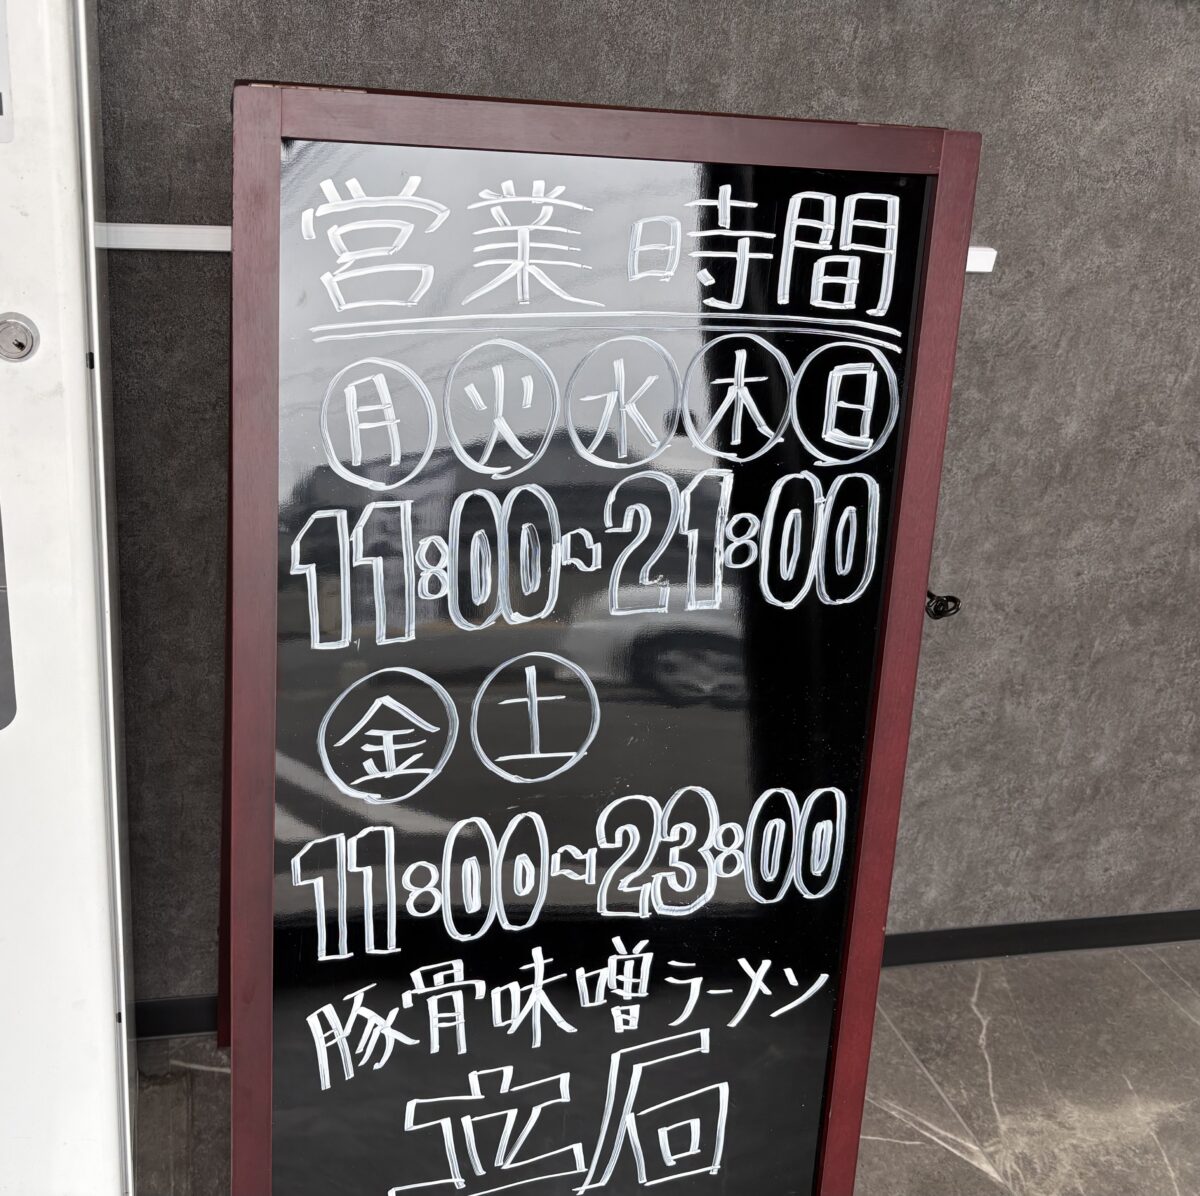 営業時間
月火水木日
11:00~21:00
金土
11:00~23:00
豚骨味噌ラーメン